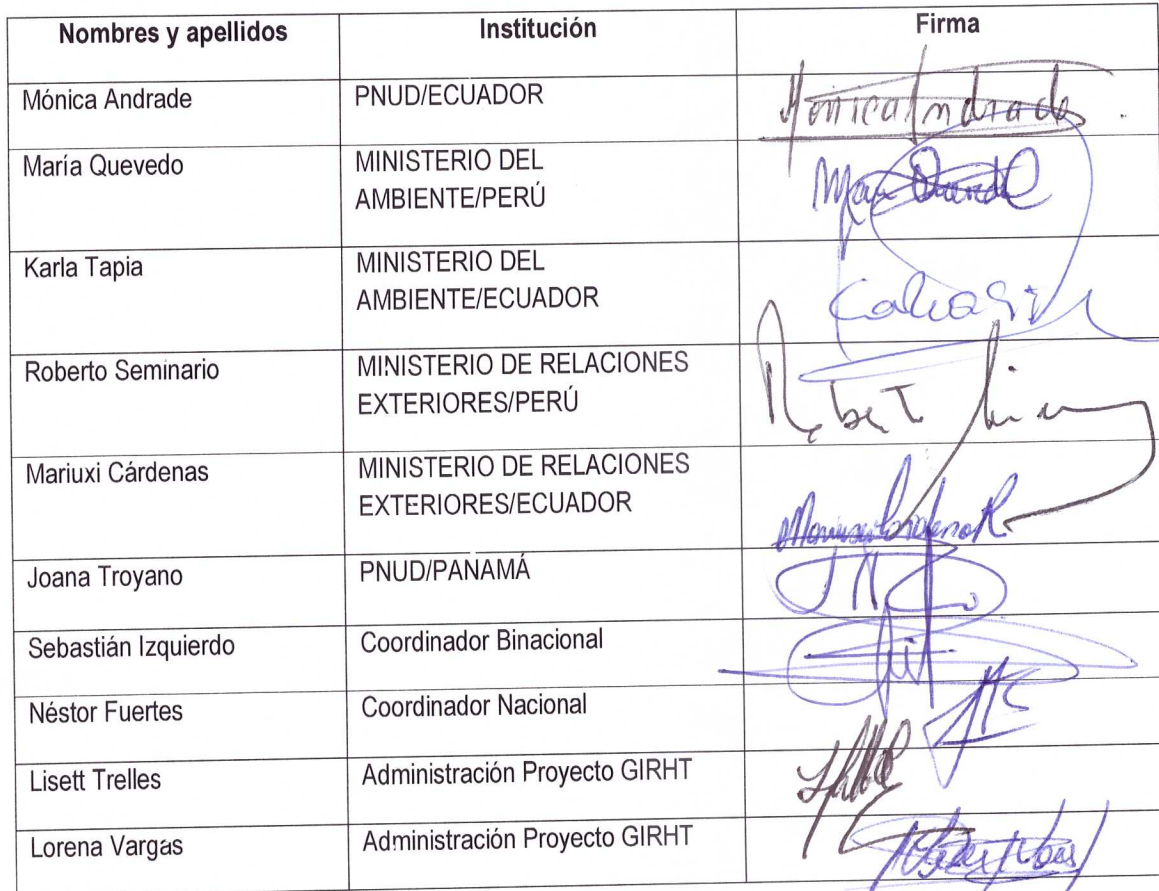 Nombres y apellidos Institución Firma
Mónica Andrade PNUD/ECUADOR Mónica Andrade
María Quevedo MINISTERIO DEL
AMBIENTE/PERÚ
Karla Tapia MINISTERIO DEL
AMBIENTE/ECUADOR
Roberto Seminario MINISTERIO DE RELACIONES
EXTERIORES/PERÚ
Mariuxi Cárdenas MINISTERIO DE RELACIONES
EXTERIORES/ECUADOR
Joana Troyano PNUD/PANAMÁ
Sebastián Izquierdo Coordinador Binacional
Néstor Fuertes Coordinador Nacional
Lisett Trelles Administración Proyecto GIRHT
Lorena Vargas Administración Proyecto GIRHT